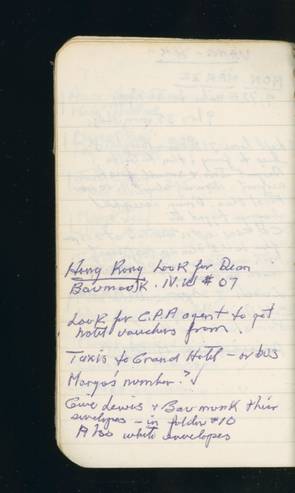 Hong Kong Look for Dean
Baumank. IV. W # 07
Look for C.P.A agent to get
hotel vouchers from.
Taxis to Grand Hotel - or bus
Margo's number? ✓
Give Lewis + Baumank their
envelopes - in folder #10
Also white envelopes